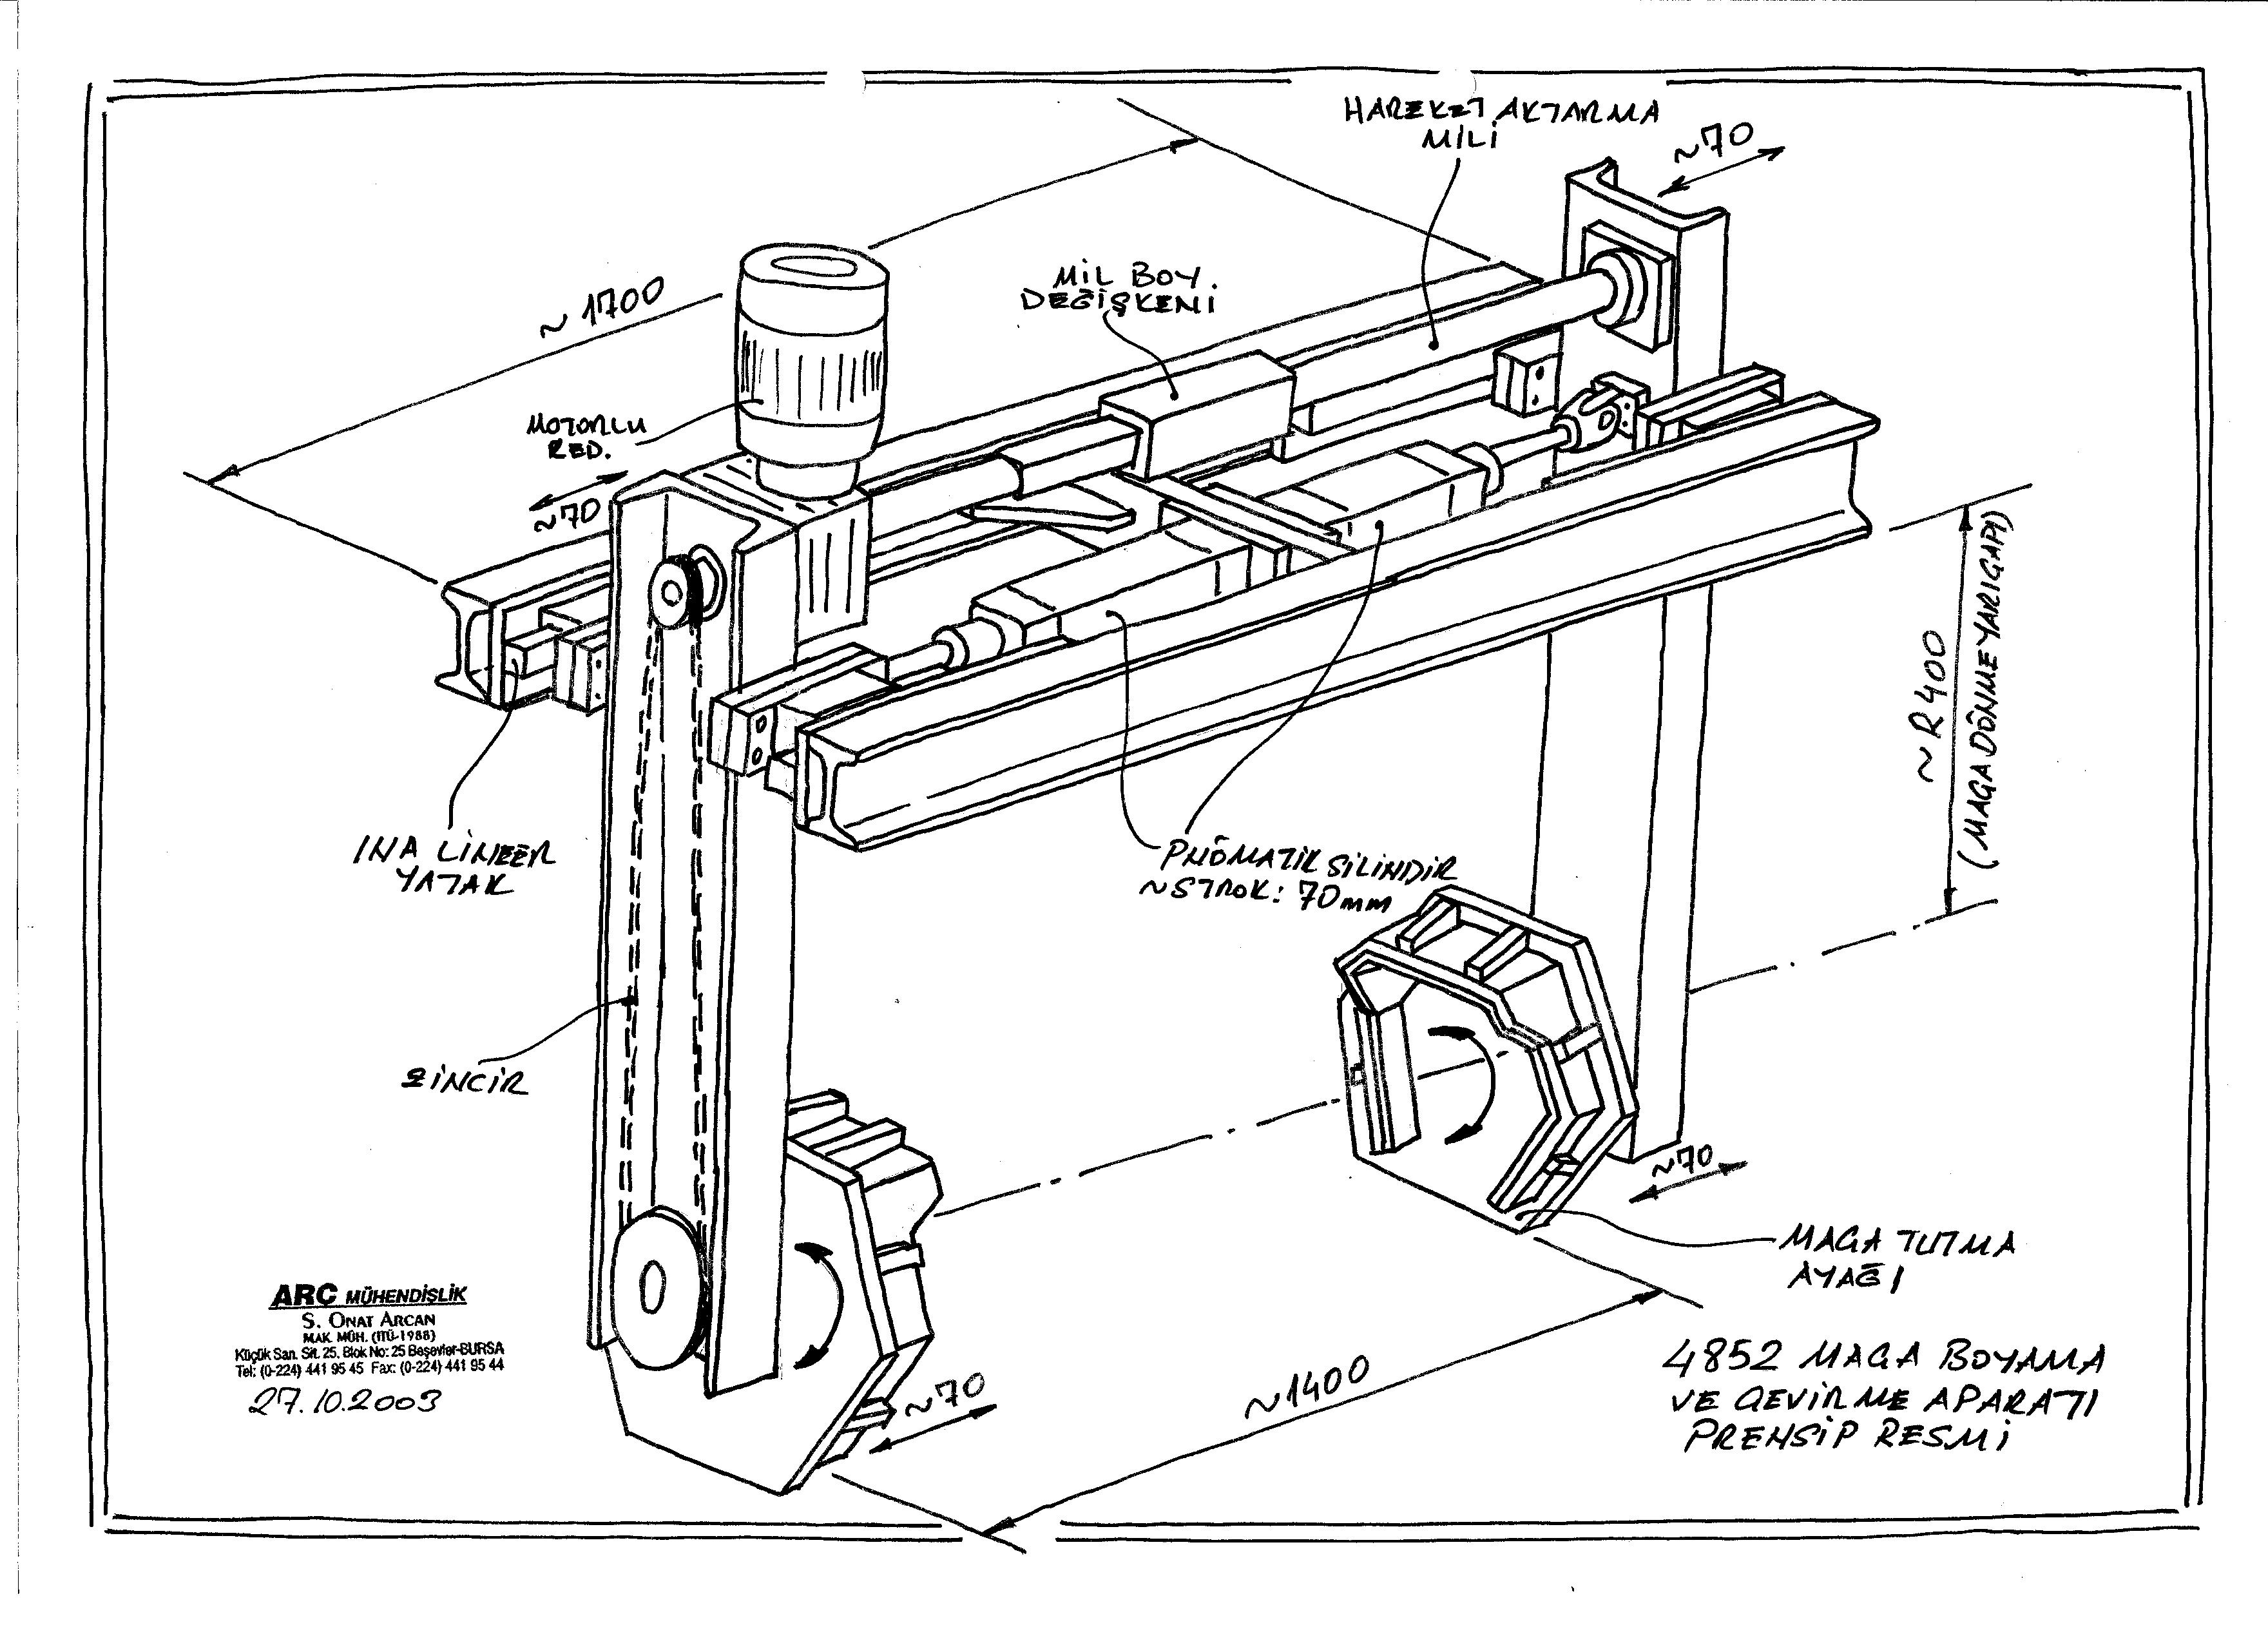 HAREKET AKTARMA
MİLİ
~70
MİL BOY.
DEĞİŞKENİ
~1700
MOTORLU
RED.
~70
~R400
(MAÇA DÖNME YARIÇAPI)
INA LİNEER
YATAK
PNÖMATİK SİLİNDİR
~STROK: 70mm
ZİNCİR
~70
MAÇA TUTMA
AYAĞI
~70
~1400
ARC MÜHENDİSLİK
S. ONAT ARCAN
MAK. MÜH. (İTÜ-1988)
Küçük San. Sit. 25. Blok No: 25 Beşevler-BURSA
Tel: (0-224) 441 95 45 Fax: (0-224) 441 95 44
27.10.2003
4852 MAÇA BOYAMA
VE ÇEVİRME APARATI
PRENSİP RESMİ